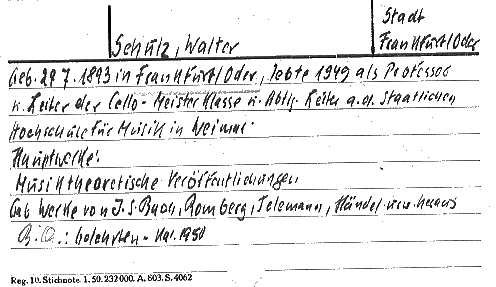 Stadt
Schulz, Walter
Frankfurt/Oder
Geb. 29.7.1893 in Frankfurt/Oder, lebte 1949 als Professor
u. Leiter der Cello-Meisterklasse u. Abtlg. Leiter a. d. Staatlichen
Hochschule für Musik in Weimar.
Hauptwerke:
Musiktheoretische Veröffentlichungen
Gab Werke von J. S. Bach, Romberg, Telemann, Händel usw. heraus
B. Q.: - Kal. 1950
Reg. 10. Stichnote 1. 50. 232000. A. 803. S. 4062